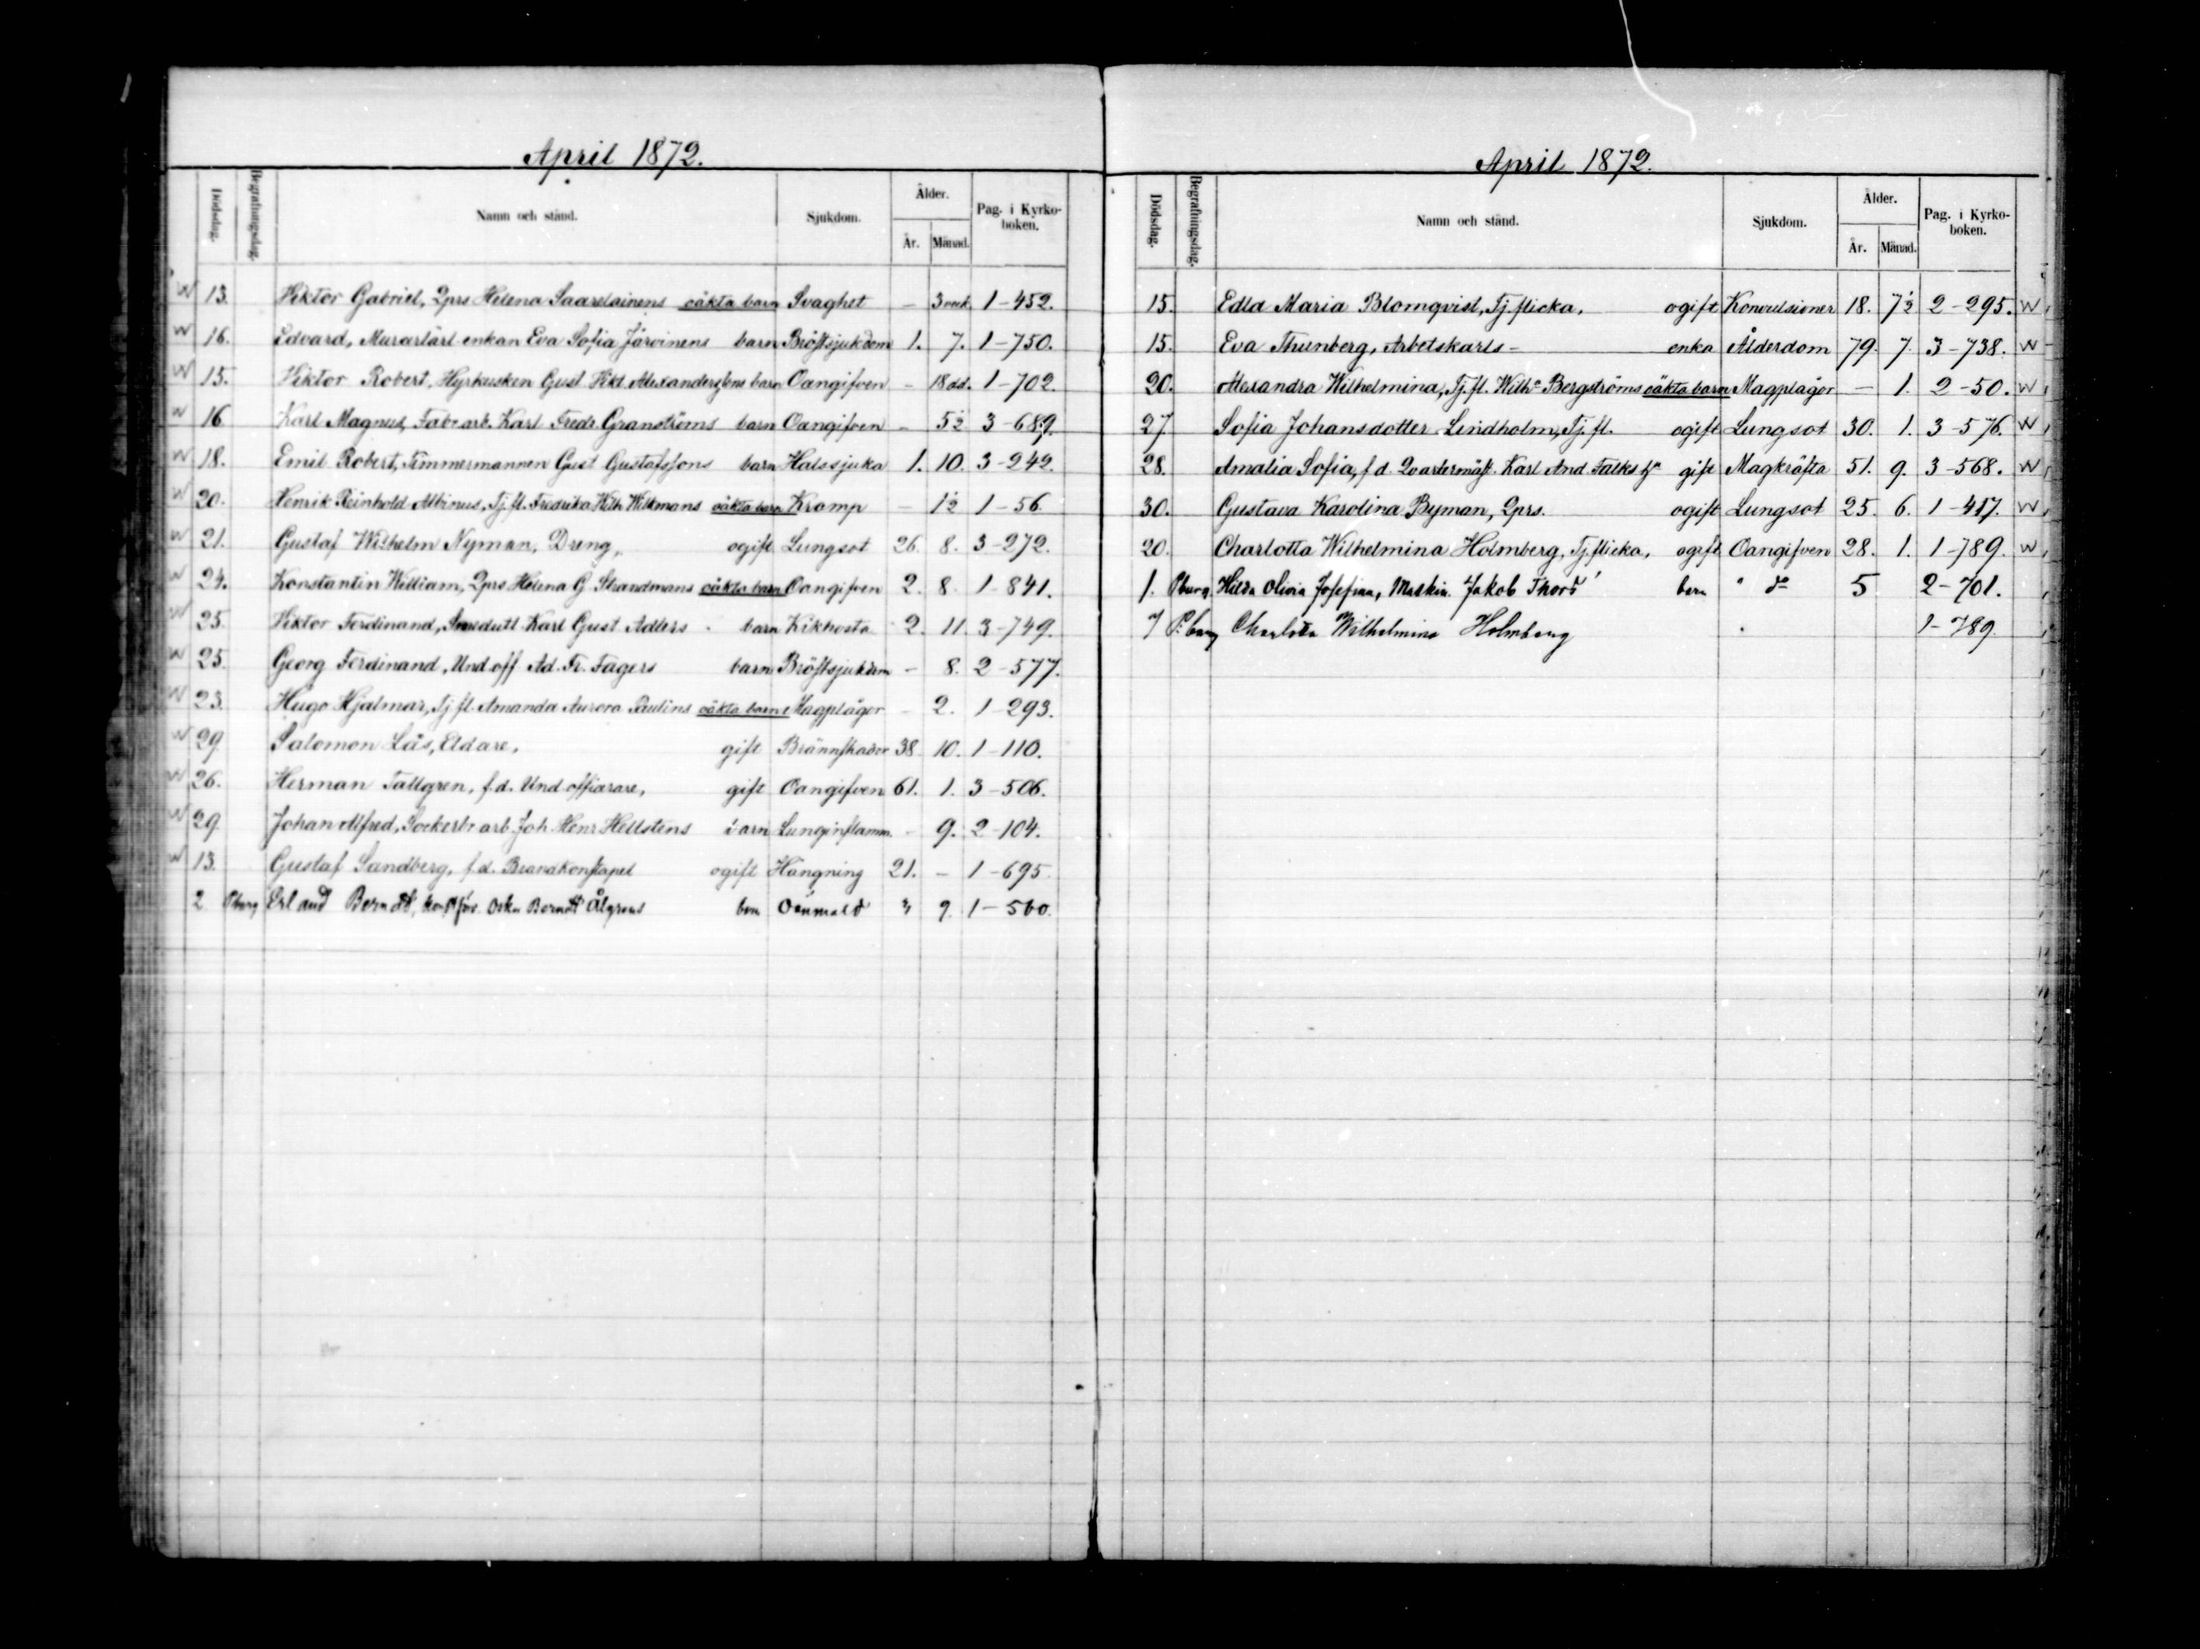 April 1872.
Dödsdag. Begrafningsdag. Namn och stånd. Sjukdom. Ålder. År. Månad. Pag. i Kyrko-boken.
W 13. Viktor Gabriel, Qprs Helena Saarelainens oäkta barn Svaghet – 3 veck. 1–452.
W 16. Edvard, Murarlärl enkan Eva Sofia Järvinens barn Bröstsjukdom 1. 7. 1–750.
W 15. Viktor Robert, Hyrkusken Gust. Vikt. barn Oangifven – 18 dd. 1–702.
W 16 Karl Magnus, Fabr arb. Karl Fredr. Granströms barn Oangifven – 5½ 3–689.
W 18. Emil Robert, Timmermannen Gust Gustafsfons barn Halssjuka 1. 10. 3–242.
W 20. Henrik Reinhold Albinus, Tj. fl. Fredrika Wilh Wilkmans oäkta barn Kramp – 1½ 1–56.
W 21. Gustaf Wilhelm Nyman, Dreng, ogift Lungsot 26. 8. 3–272.
W 24. Konstantin William, Qprs Helena G. Strandmans oäkta barn Oangifven 2. 8. 1–841.
W 25. Viktor Ferdinand, Karl Gust Adlers barn Kikhosta 2. 11. 3–749.
W 25. Georg Ferdinand, Und off Ad. Fr. Fagers barn Bröstsjukdom – 8. 2–577.
W 23. Hugo Hjalmar, Tj fl. Amanda Aurora Paulins oäkta barn Magplågor – 2. 1–293.
W 29 Salomon Lås, Eldare, gift Brännskador 38 10. 1–110.
W 26. Herman Tallgren, f.d. Und officerare, gift Oangifven 61. 1. 3–506.
W 29. Johan Alfred, Sockerbr arb. Joh. Henr Hellstens barn Lunginflamm. – 9. 2–104.
W 13. Gustaf Sandberg, f.d. Brandkonstapel ogift Hängning 21. – 1–695.
2 Pburg Erland Berndt, Osk Berndt Ålgrens barn Oanmäld 3 9. 1–560.
April 1872.
Dödsdag. Begrafningsdag. Namn och stånd. Sjukdom. Ålder. År. Månad. Pag. i Kyrko-boken.
15. Edla Maria Blomqvist, Tj. flicka, ogift Konvulsioner 18. 7½ 2–295. W
15. Eva Thunberg, Arbetskarls– enka Ålderdom 79. 7. 3–738. W
20. Alexandra Wilhelmina, Tj. fl. Wilhᵃ Bergströms oäkta barn Magplågor – 1. 2–50. W
27 Sofia Johansdotter Lindholm, Tj. fl. ogift Lungsot 30. 1. 3–576. W
28. Amalia Sofia, f d. Qvartermäst. Karl And. Falks gift Magkräfta 51. 9. 3–568. W
30. Gustava Karolina Byman, Qprs. ogift Lungsot 25. 6. 1–417. W
20. Charlotta Wilhelmina Holmberg, Tj. flicka, ogift Oangifven 28. 1. 1–789. W
1. Pburg. Hilda Olivia Josefina, Maskin. Jakob Thors barn " dᵒ 5 2–701.
7 P:burg Charlotta Wilhelmina Holmberg 1–789.